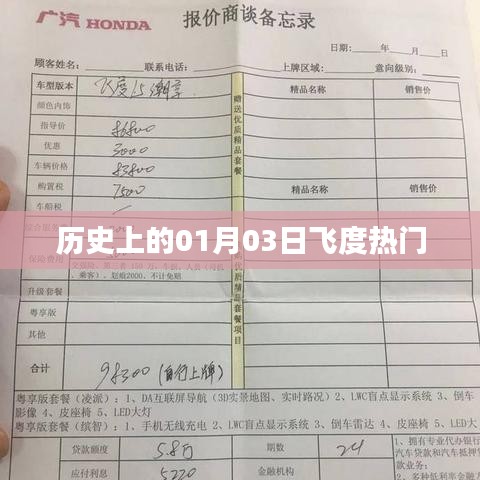 广汽 HONDA 报价商谈备忘录
日期:____年__月__日
顾客姓名: 联系电话: 上牌区域: 意向级别:
车型版本 飞度1.5潮享 精品名称 销售价
颜色内饰
指导价 86800
优惠 3000
车辆价格 83800
购置税 7500 精品名称 销售价
车船税
赠送优质精品套餐
历史上的01月03日飞度热门
保险费用
、乘客)、划痕2000、不计免赔
升级套餐
粤享版
其他
优质精品套餐项目
合计 98300(自行上牌)
粤享版套餐(凌派):1、DA互联屏导航(3D实景地图、实时路况)2、LWC盲点显示系统 3、倒车
影像 4、皮座椅 5、LED大灯
粤享版套餐(缤智):1、手机无线充电 2、LWC盲点显示系统 3、倒车雷达 4、皮座椅 5、LED
贷款额度 5.8万 期数 24 1、拥有专业代办银行
应付利息 5220 金融机构 贷款和汽车抵押贷款
业务;